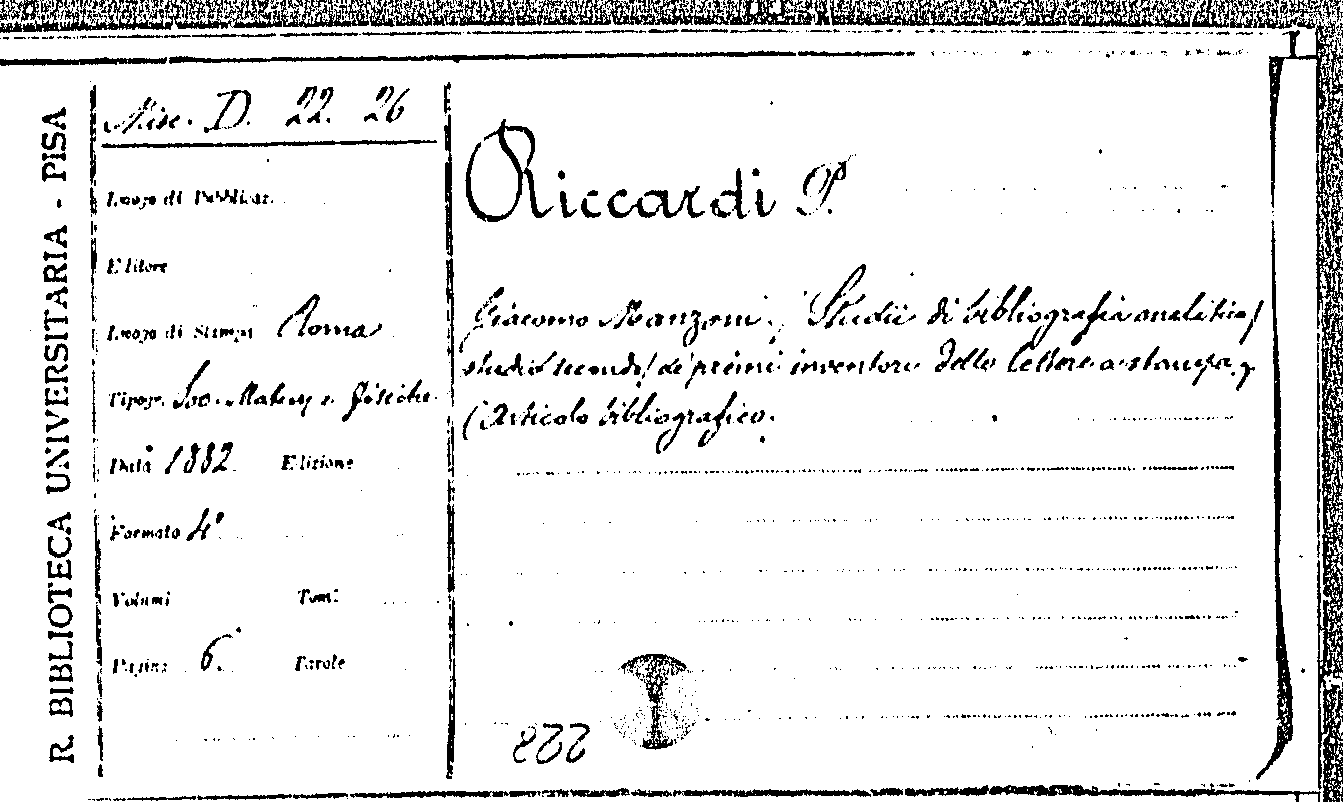 R. BIBLIOTECA UNIVERSITARIA - PISA
Misc. D. 22. 26
Luogo di Pubblicaz.
Editore
Luogo di Stampa Roma
Tipogr. Soc. Matem. e Fisiche
Data 1882 Edizione
Formato 4°
Volumi Tomi
Pagine 6. Tavole
Riccardi P.
Giacomo Manzoni, Studii di bibliografia analitica/
studio secondo/ de' primi inventori delle lettere a stampa,
(Articolo bibliografico.
822